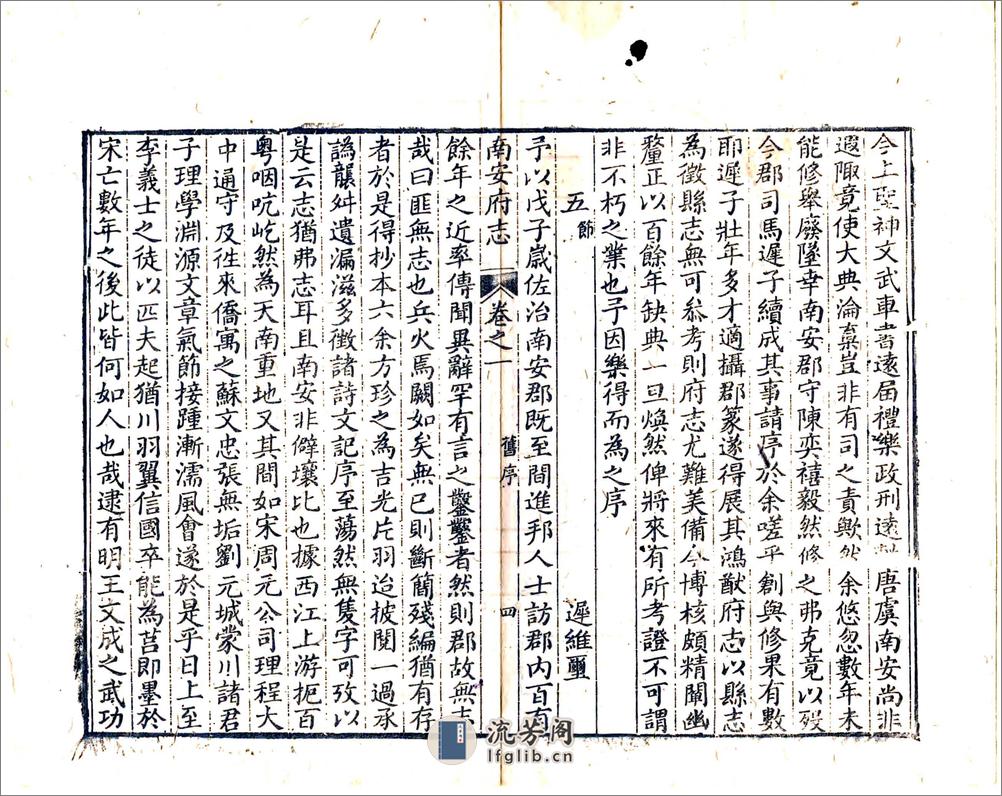 今上聖神文武車書遠届禮樂政刑遠唐虞南安尚非
遐陬竟使大典淪棄豈非有司之責歟余悠忽數年未
能修舉廢墜幸南安郡守陳奕禧毅然修之弗克竟以歿
今郡司馬遲子續成其事請序於余嗟乎創與修果有數
耶遲子壯年多才適攝郡篆遂得展其鴻猷府志以縣志
為徵縣志無可叅考則府志尤難美備今博核頗精闡幽
釐正以百餘年缺典一旦煥然俾將來有所考證不可謂
非不朽之業也予因樂得而為之序
五節 遲維璽
予以戊子嵗佐治南安郡既至間進邦人士訪郡内百有
南安府志 卷之一 舊序 四
餘年之近率傳聞異辭罕有言之鑿鑿者然則郡故無志
哉曰匪無志也兵火焉闕如矣無已則斷簡殘編猶有存
者於是得抄本六余方珍之為吉光片羽迨披閱一過承
譌襲舛遺漏滋多徵諸詩文記序至蕩然無隻字可攷以
是云志猶弗志耳且南安非僻壤比也據西江上游扼百
粤咽吭屹然為天南重地又其間如宋周元公司理程大
中通守及徃來僑寓之蘇文忠張無垢劉元城蒙川諸君
子理學淵源文章氣節接踵漸濡風會遂於是乎日上至
李義士之徒以匹夫起猶川羽翼信國卒能為莒即墨於
宋亡數年之後此皆何如人也哉逮有明王文成之武功
流芳阁
lfglib.cn